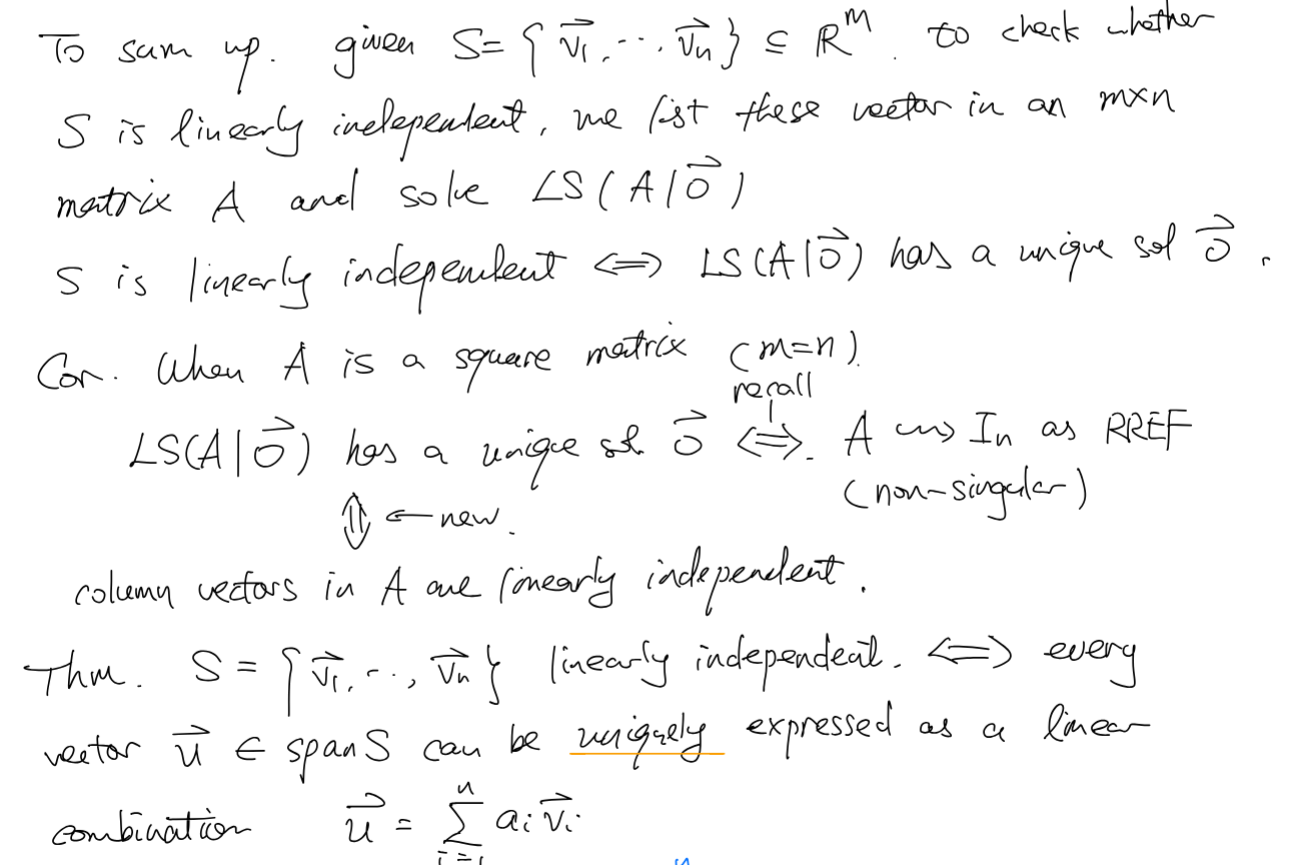 To sum up. given S = { v⃗₁, ..., v⃗ₙ } ⊆ ℝᵐ. to check whether
S is linearly independent, we list these vector in an m×n
matrix A and solve LS(A|0⃗)
S is linearly independent ⟺ LS(A|0⃗) has a unique sol 0⃗.
Cor. When A is a square matrix (m=n).
recall
LS(A|0⃗) has a unique sol 0⃗ ⟺. A ⇝ Iₙ as RREF
(non-singular)
⇕ ← new.
column vectors in A are linearly independent.
Thm. S = { v⃗₁, ..., v⃗ₙ } linearly independent. ⟺ every
vector u⃗ ∈ span S can be uniquely expressed as a linear
combination u⃗ = ∑ⁿᵢ₌₁ aᵢ v⃗ᵢ.